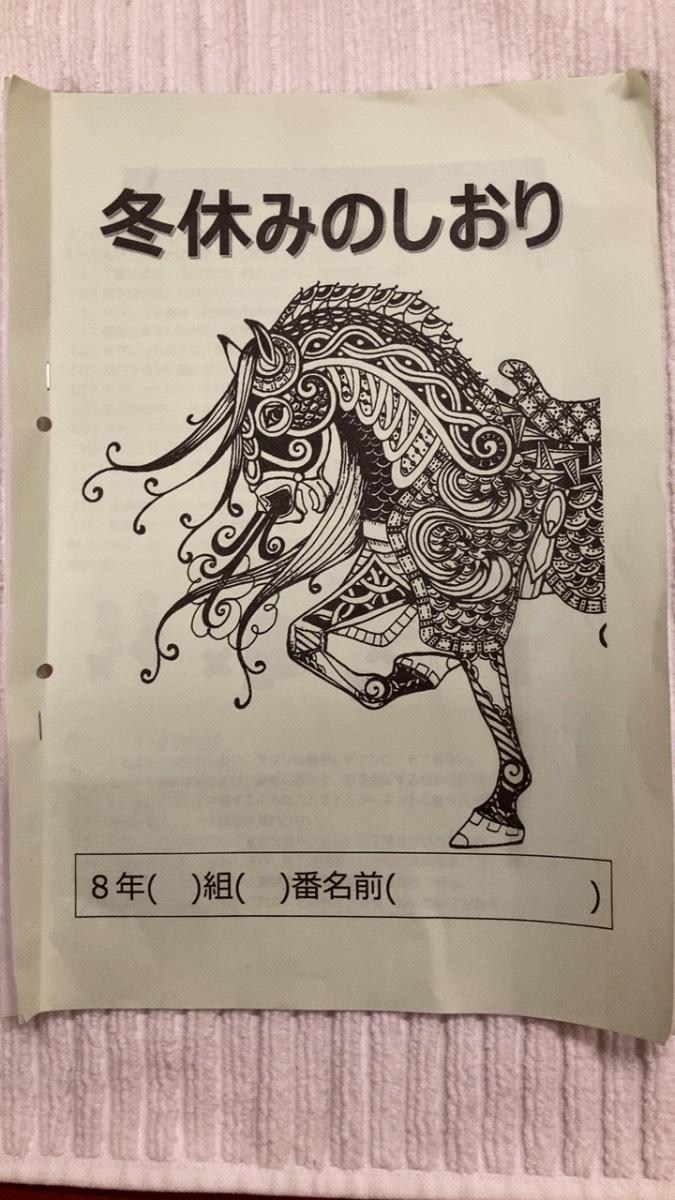 冬休みのしおり
８年(　)組(　)番名前(　　　　　　　)